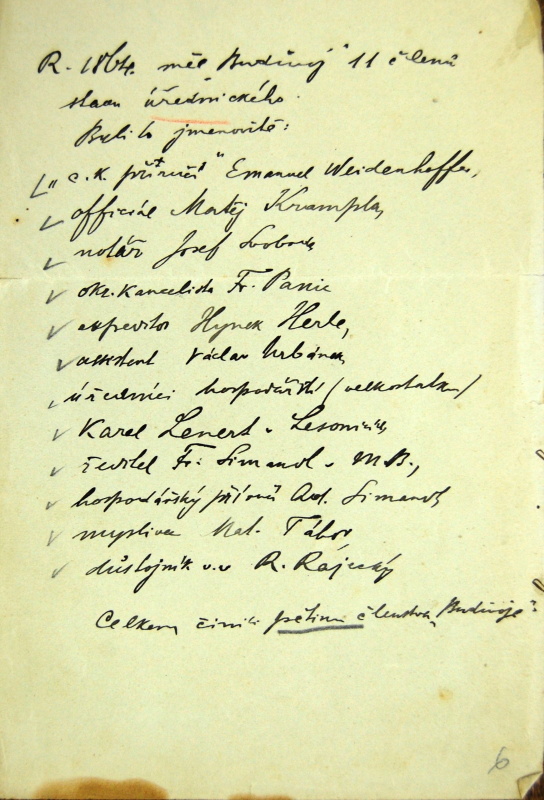 R. 1864. měl „Budivoj" 11 členů
stavu úřednického.
Byli to jmenovitě:
„c. k. příručí" Emanuel Weidenhoffer,
officiál Matěj Krampla,
notář Josef Svoboda
okr. kancelista Fr. Panic
expeditor Hynek Herle,
assistent Václav Urbánek
úředníci hospodářští (velkostatku)
Karel Lenert v Lesonicích
ředitel Fr. Simandl v M.B.,
hospodářský příručí Ant. Simandl
myslivec Mat. Tábor
důstojník v.v R. Rájecký
Celkem činili pětinu členstva „Budivoje".
6